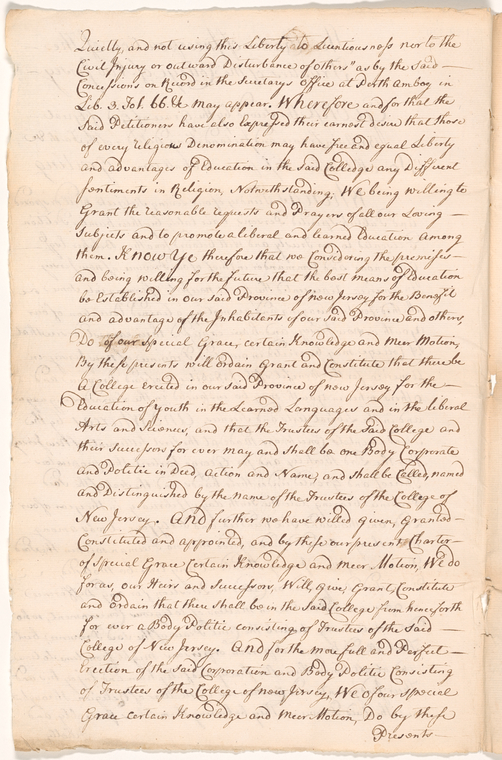 Quietly, and not using this Liberty to Licentiousness nor to the
Civil Injury or outward Disturbance of others" as by the Said —
Concessions on Record in the Secretarys office at Perth Amboy in
Lib. 3. Fol. 66. &c may appear. Wherefore and for that the
Said Petitioners have also Expressed their earnest desire that those
of every religious Denomination may have free and equal Liberty
and advantages of Education in the Said Colledge any Different
Sentiments in Religion, Notwithstanding; We being willing to
Grant the reasonable requests and Prayers of all our Loving —
Subjects and to promote a liberal and learned Education among
them. Know Ye therefore that we Considering the premises —
and being willing for the future that the best means of Education
be Established in our said Province of new Jersey for the Benefit
and advantage of the Inhabitants of our Said Province and others
Do of our Special Grace, certain Knowledge and Meer Motion,
By these presents will ordain Grant and Constitute that there be
A College Erected in our said Province of new Jersey for the —
Education of Youth in the Learned Languages and in the liberal
Arts and Sciences, and that the Trustees of the Said College and
their Successors for ever may and shall be one Body Corporate
and Politic in Deed, action and Name; and shall be Called, named
and Distinguished by the name of the Trustees of the College of
New Jersey. And further we have willed Given, Granted —
Constituted and appointed, and by these our present Charter —
of Special Grace Certain Knowledge and meer Motion, We do
for us, our Heirs and Successors, Will, Give, Grant, Constitute
and ordain that there shall be in the Said College from henceforth
for ever a Body Politic consisting of Trustees of the Said —
College of New Jersey. And for the more full and Perfect —
Erection of the Said Corporation and Body Politic Consisting
of Trustees of the College of new Jersey, We of our special
Grace certain Knowledge and Meer Motion, Do by these
Presents —